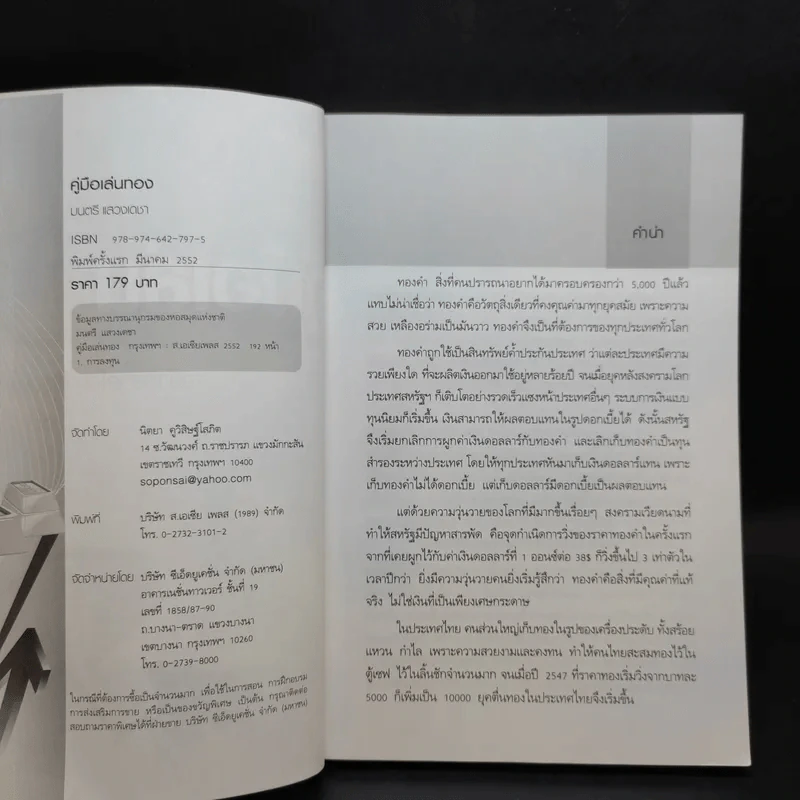 คู่มือเล่นทอง
มนตรี แสวงเดชา
ISBN 978-974-642-797-5
พิมพ์ครั้งแรก มีนาคม 2552
ราคา 179 บาท
ข้อมูลทางบรรณานุกรมของหอสมุดแห่งชาติ
มนตรี แสวงเดชา
คู่มือเล่นทอง กรุงเทพฯ : ส.เอเซียเพลส 2552 192 หน้า
1. การลงทุน
จัดทำโดย นิตยา คูวิสิษฐ์โสภิต
14 ซ.วัฒนวงศ์ ถ.ราชปรารภ แขวงมักกะสัน
เขตราชเทวี กรุงเทพฯ 10400
soponsai@yahoo.com
พิมพ์ที่ บริษัท ส.เอเซีย เพลส (1989) จำกัด
โทร. 0-2732-3101-2
จัดจำหน่ายโดย บริษัท ซีเอ็ดยูเคชั่น จำกัด (มหาชน)
อาคารเนชั่นทาวเวอร์ ชั้นที่ 19
เลขที่ 1858/87-90
ถ.บางนา-ตราด แขวงบางนา
เขตบางนา กรุงเทพฯ 10260
โทร. 0-2739-8000
ในกรณีที่ต้องการซื้อเป็นจำนวนมาก เพื่อใช้ในการสอน การฝึกอบรม
การส่งเสริมการขาย หรือเป็นของขวัญพิเศษ เป็นต้น กรุณาติดต่อ
สอบถามราคาพิเศษได้ที่ฝ่ายขาย บริษัท ซีเอ็ดยูเคชั่น จำกัด (มหาชน)
คำนำ
ทองคำ สิ่งที่คนปรารถนาอยากได้มาครอบครองกว่า 5,000 ปีแล้ว
แทบไม่น่าเชื่อว่า ทองคำคือวัตถุสิ่งเดียวที่คงคุณค่ามาทุกยุคสมัย เพราะความ
สวย เหลืองอร่ามเป็นมันวาว ทองคำจึงเป็นที่ต้องการของทุกประเทศทั่วโลก
ทองคำถูกใช้เป็นสินทรัพย์ค้ำประกันประเทศ ว่าแต่ละประเทศมีความ
รวยเพียงใด ที่จะผลิตเงินออกมาใช้อยู่หลายร้อยปี จนเมื่อยุคหลังสงครามโลก
ประเทศสหรัฐฯ ก็เติบโตอย่างรวดเร็วแซงหน้าประเทศอื่นๆ ระบบการเงินแบบ
ทุนนิยมก็เริ่มขึ้น เงินสามารถให้ผลตอบแทนในรูปดอกเบี้ยได้ ดังนั้นสหรัฐ
จึงเริ่มยกเลิกการผูกค่าเงินดอลลาร์กับทองคำ และเลิกเก็บทองคำเป็นทุน
สำรองระหว่างประเทศ โดยให้ทุกประเทศหันมาเก็บเงินดอลลาร์แทน เพราะ
เก็บทองคำไม่ได้ดอกเบี้ย แต่เก็บดอลลาร์มีดอกเบี้ยเป็นผลตอบแทน
แต่ด้วยความวุ่นวายของโลกที่มีมากขึ้นเรื่อยๆ สงครามเวียดนามที่
ทำให้สหรัฐมีปัญหาสารพัด คือจุดกำเนิดการวิ่งของราคาทองคำในครั้งแรก
จากที่เคยผูกไว้กับค่าเงินดอลลาร์ที่ 1 ออนซ์ต่อ 38$ ก็วิ่งขึ้นไป 3 เท่าตัวใน
เวลาปีกว่า ยิ่งมีความวุ่นวายคนยิ่งเริ่มรู้สึกว่า ทองคำคือสิ่งที่มีคุณค่าที่แท้
จริง ไม่ใช่เงินที่เป็นเพียงเศษกระดาษ
ในประเทศไทย คนส่วนใหญ่เก็บทองในรูปของเครื่องประดับ ทั้งสร้อย
แหวน กำไล เพราะความสวยงามและคงทน ทำให้คนไทยสะสมทองไว้ใน
ตู้เซฟ ไว้ในลิ้นชักจำนวนมาก จนเมื่อปี 2547 ที่ราคาทองเริ่มวิ่งจากบาทละ
5000 ก็เพิ่มเป็น 10000 ยุคตื่นทองในประเทศไทยจึงเริ่มขึ้น